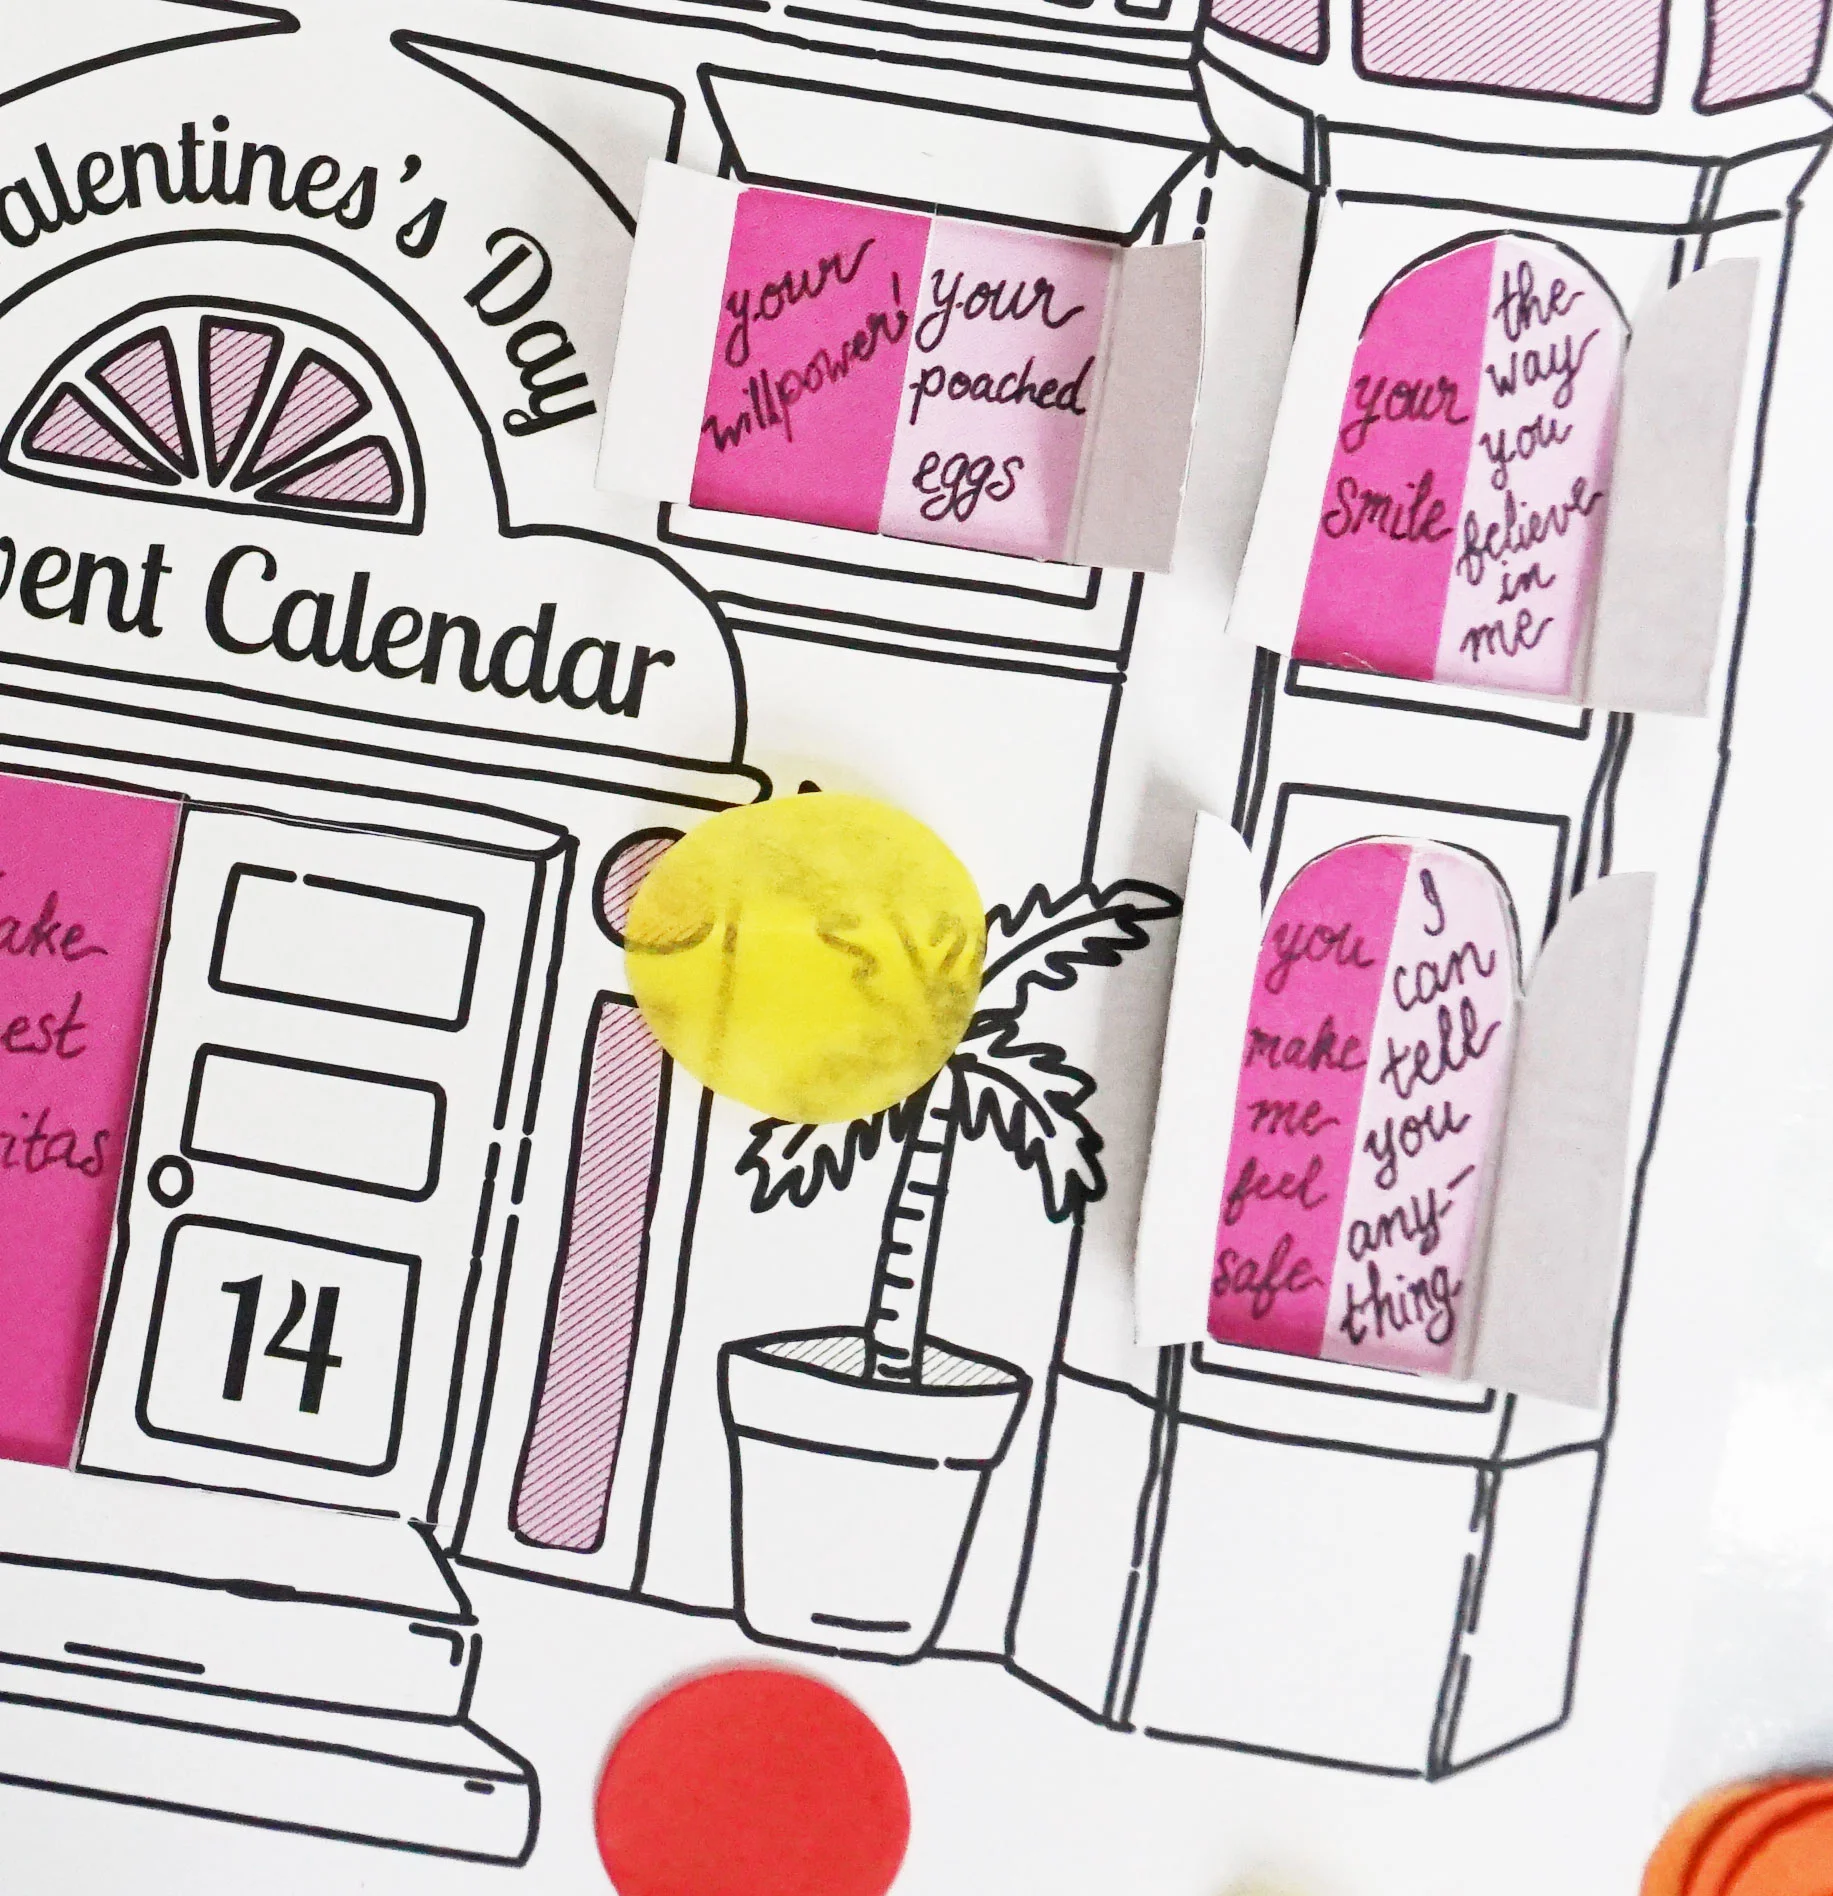 alentines's Day
vent Calendar
your
willpower!
your
poached
eggs
your
smile
the
way
you
believe
in
me
ake
est
itas
14
you
make
me
feel
safe
I
can
tell
you
any-
thing